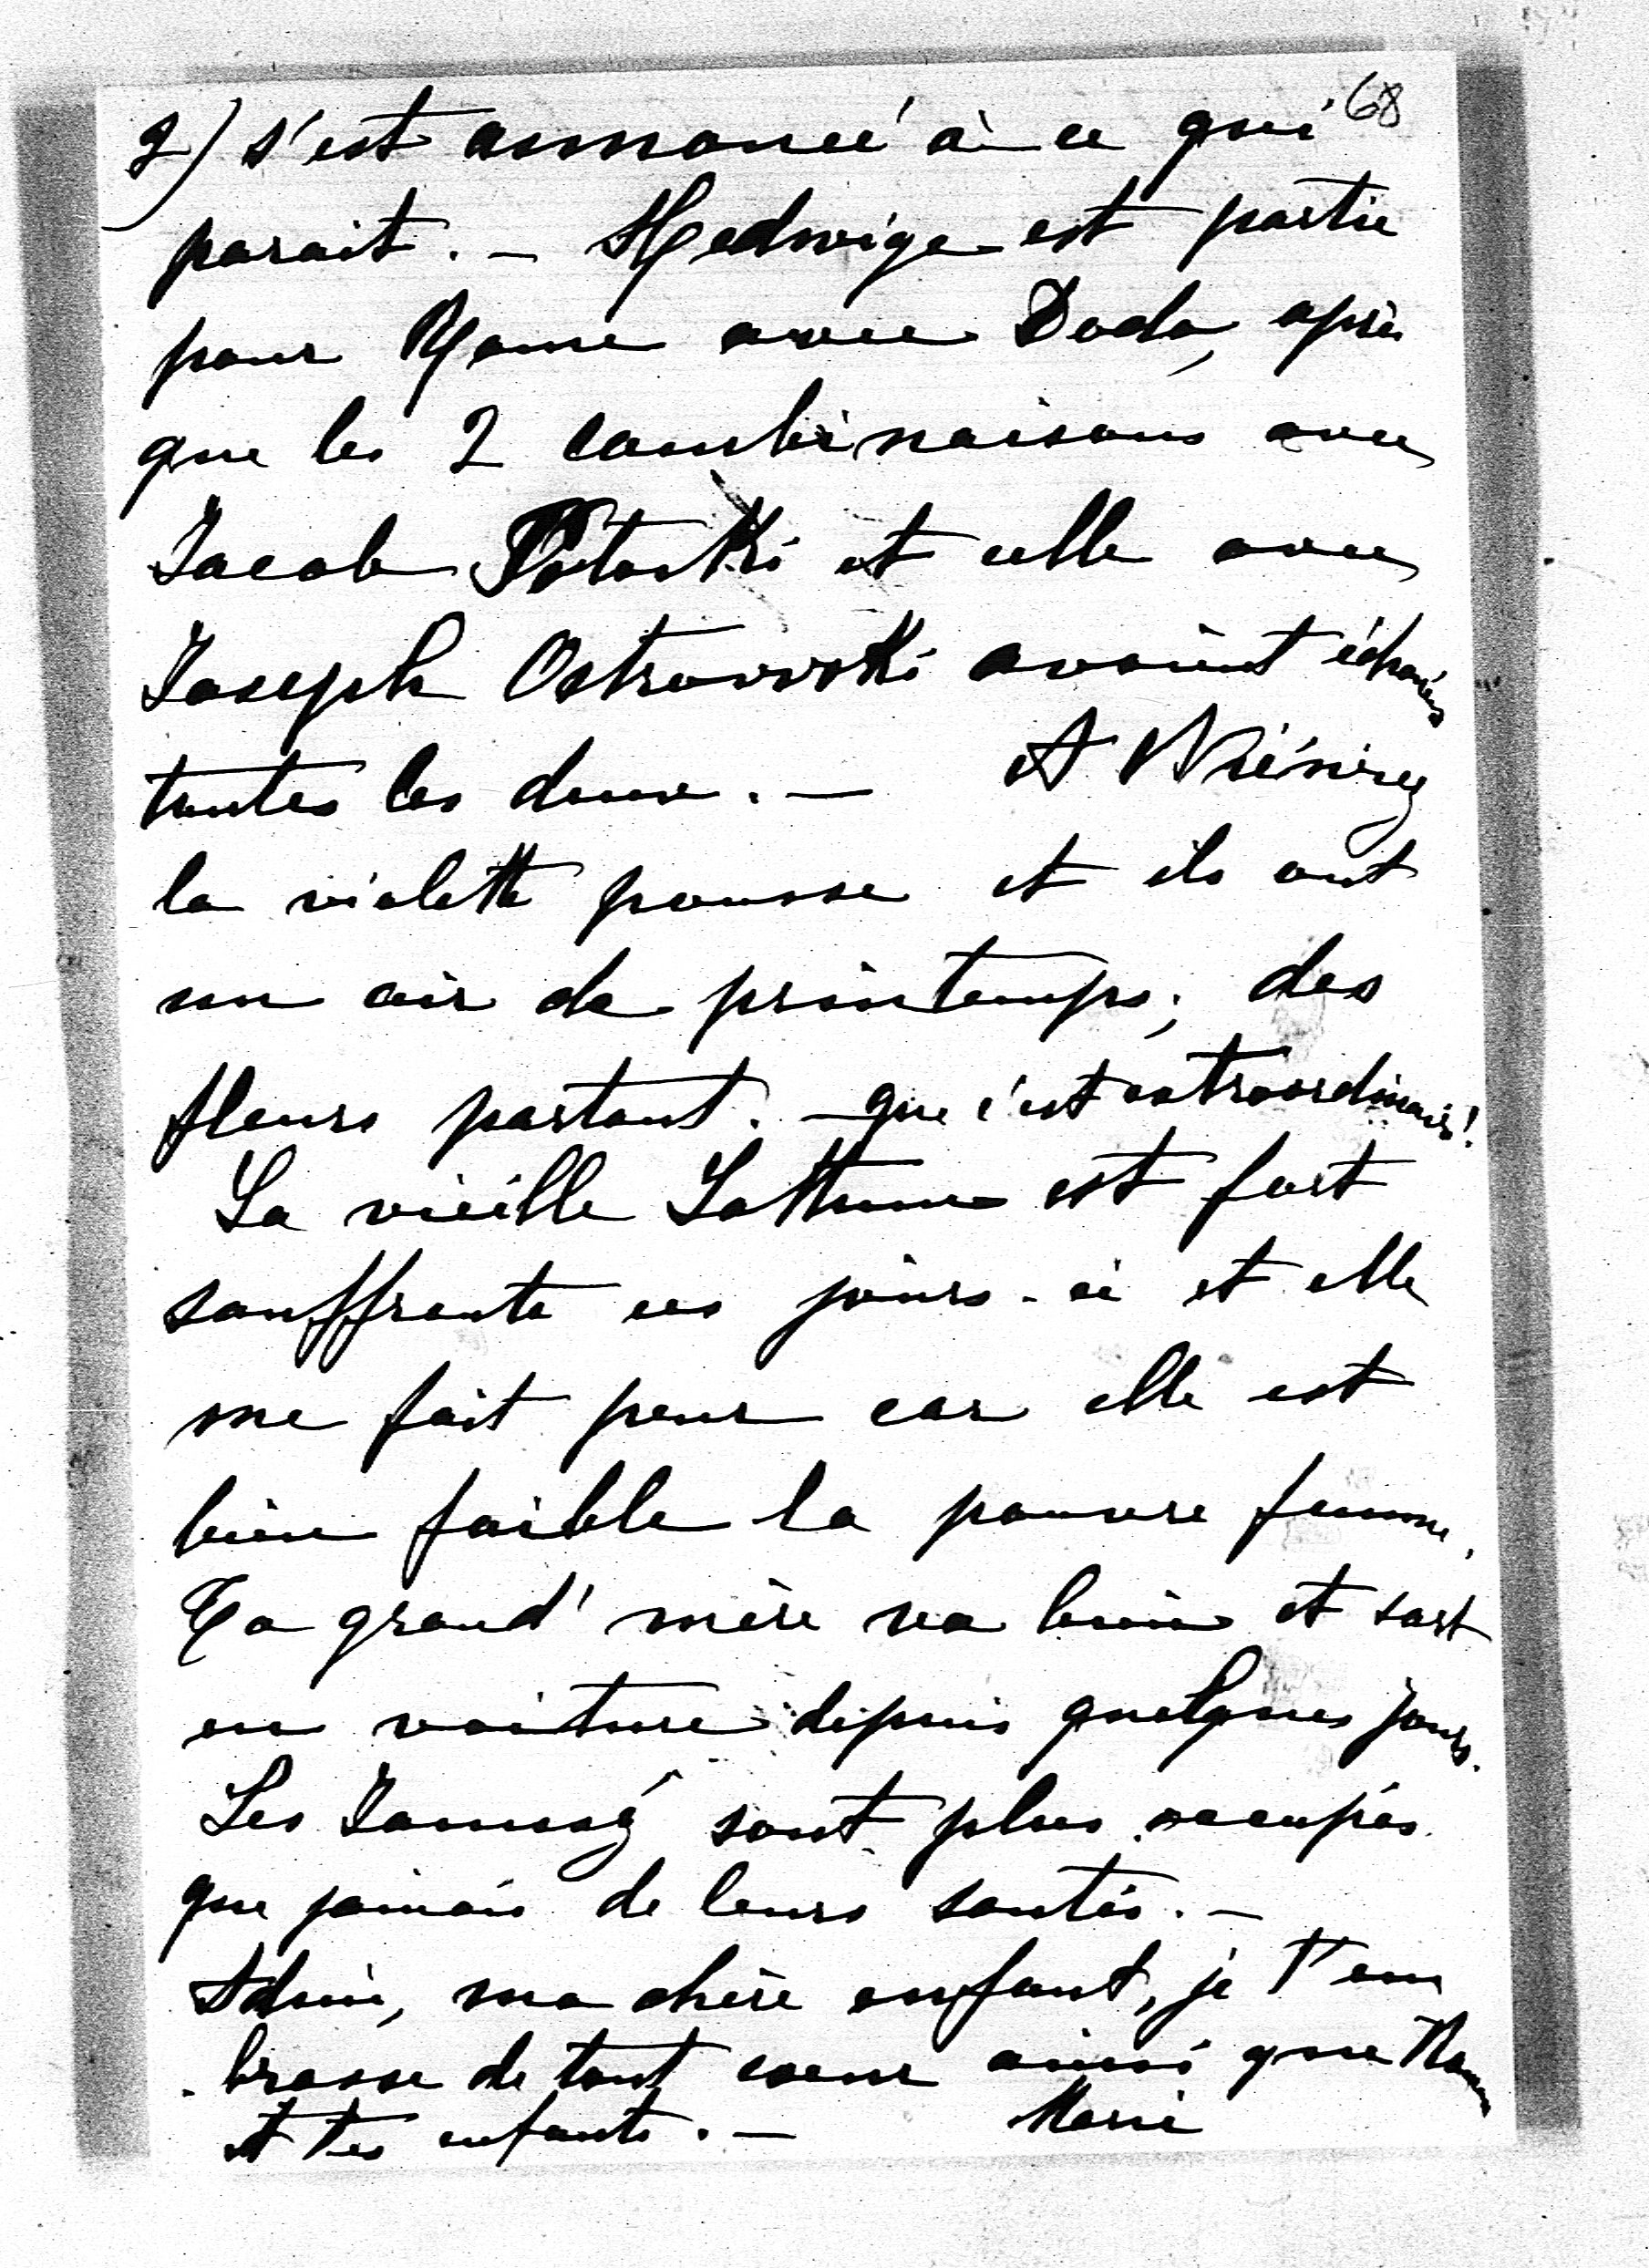 68
2) s'est annoncé à ce qui
parait. — Hedwige est partie
pour Rome avec Doda, après
que les 2 combinaisons avec
Jacob Potocki et celle avec
Joseph Ostrowski avaient échouées
toutes les deux. — A Nieśwież
la violette pousse et ils ont
un air de printemps; des
fleurs partout. — que c'est extraordinaire!
La vieille est fort
souffrante ces jours-ci et elle
me fait peur car elle est
bien faible la pauvre femme.
Ta grand'mère va bien et sort
en voiture depuis quelques jours.
Les Janusz sont plus occupés
que jamais de leurs santés. —
Adieu, ma chère enfant, je t'em
brasse de tout coeur ainsi que
et tes enfants. — Marie